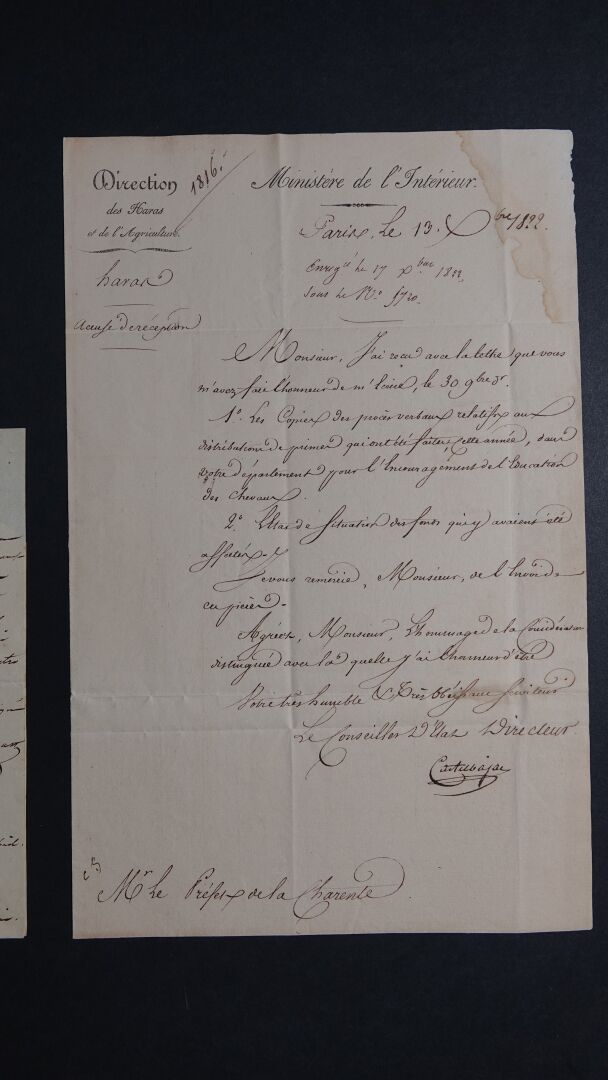 Direction
des Haras
et de l'Agriculture.
1816.
Ministère de l'Intérieur.
Paris, Le 13. Xbre 1822.
Enregté le 17 xbre 1822
sous le No.
haras
Accusé de réception
Monsieur, J'ai reçu avec la lettre que vous
m'avez fait l'honneur de m'écrire, le 30 9bre dr.
1o. Les Copies des procès verbaux relatifs aux
distributions de primes qui ont été faites, cette année, dans
votre département pour l'Encouragement de l'Education
des chevaux.
2o. L'Etat de Situation des fonds qui y avaient été
affectés.
Je vous remercie, Monsieur, de l'Envoi de
ces pièces.
Agréez, Monsieur, L'hommage de la Considération
distinguée avec la quelle j'ai l'honneur d'être
Votre très humble & Très Obéissant Serviteur
Le Conseiller D'Etat Directeur.
Castelbajac
Mr. Le Préfet de la Charente